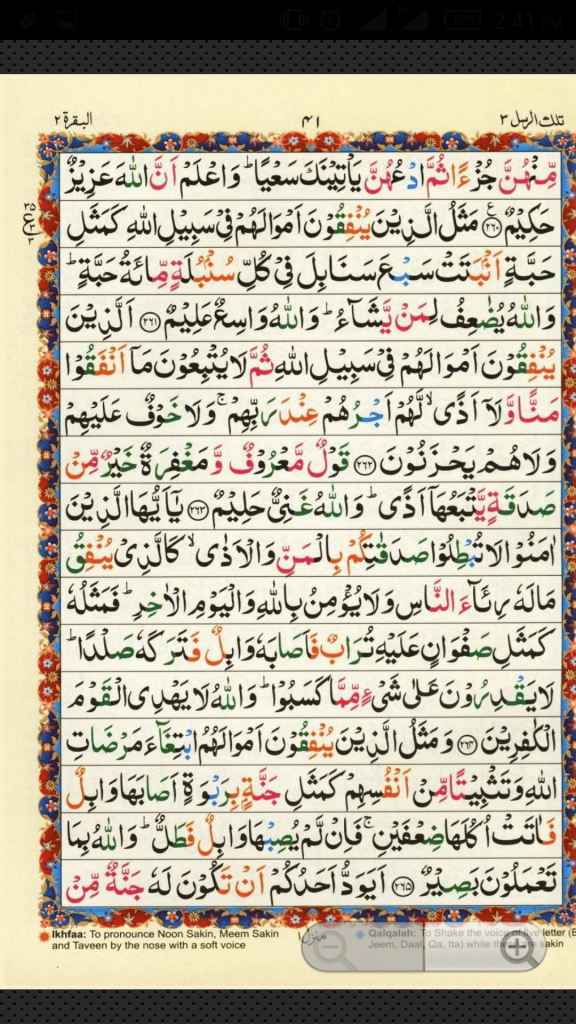 2:41 PM
62%
H
البقرة ٢
٤١
تلك الرسل ٣
مِّنْهُنَّ جُزْءًا ثُمَّ ادْعُهُنَّ يَاْتِيْنَكَ سَعْيًا ؕ وَاعْلَمْ اَنَّ اللّٰهَ عَزِيْزٌ
حَكِيْمٌ ﴿۲۶۰﴾ مَثَلُ الَّذِيْنَ يُنْفِقُوْنَ اَمْوَالَهُمْ فِيْ سَبِيْلِ اللّٰهِ كَمَثَلِ
حَبَّةٍ اَنْۢبَتَتْ سَبْعَ سَنَابِلَ فِيْ كُلِّ سُنْۢبُلَةٍ مِّائَةُ حَبَّةٍ ؕ
وَاللّٰهُ يُضٰعِفُ لِمَنْ يَّشَآءُ ؕ وَاللّٰهُ وَاسِعٌ عَلِيْمٌ ﴿۲۶۱﴾ اَلَّذِيْنَ
يُنْفِقُوْنَ اَمْوَالَهُمْ فِيْ سَبِيْلِ اللّٰهِ ثُمَّ لَا يُتْبِعُوْنَ مَاۤ اَنْفَقُوْا
مَنًّا وَّلَاۤ اَذًى ۙ لَّهُمْ اَجْرُهُمْ عِنْدَ رَبِّهِمْ ۚ وَلَا خَوْفٌ عَلَيْهِمْ
وَلَا هُمْ يَحْزَنُوْنَ ﴿۲۶۲﴾ قَوْلٌ مَّعْرُوْفٌ وَّ مَغْفِرَةٌ خَيْرٌ مِّنْ
صَدَقَةٍ يَّتْبَعُهَاۤ اَذًى ؕ وَاللّٰهُ غَنِيٌّ حَلِيْمٌ ﴿۲۶۳﴾ يٰۤاَيُّهَا الَّذِيْنَ
اٰمَنُوْا لَا تُبْطِلُوْا صَدَقٰتِكُمْ بِالْمَنِّ وَالْاَذٰى ۙ كَالَّذِيْ يُنْفِقُ
مَالَهٗ رِئَآءَ النَّاسِ وَلَا يُؤْمِنُ بِاللّٰهِ وَالْيَوْمِ الْاٰخِرِ ؕ فَمَثَلُهٗ
كَمَثَلِ صَفْوَانٍ عَلَيْهِ تُرَابٌ فَاَصَابَهٗ وَابِلٌ فَتَرَكَهٗ صَلْدًا ؕ
لَا يَقْدِرُوْنَ عَلٰى شَيْءٍ مِّمَّا كَسَبُوْا ؕ وَاللّٰهُ لَا يَهْدِى الْقَوْمَ
الْكٰفِرِيْنَ ﴿۲۶۴﴾ وَمَثَلُ الَّذِيْنَ يُنْفِقُوْنَ اَمْوَالَهُمُ ابْتِغَآءَ مَرْضَاتِ
اللّٰهِ وَتَثْبِيْتًا مِّنْ اَنْفُسِهِمْ كَمَثَلِ جَنَّةٍۭ بِرَبْوَةٍ اَصَابَهَا وَابِلٌ
فَاٰتَتْ اُكُلَهَا ضِعْفَيْنِ ۚ فَاِنْ لَّمْ يُصِبْهَا وَابِلٌ فَطَلٌّ ؕ وَاللّٰهُ بِمَا
تَعْمَلُوْنَ بَصِيْرٌ ﴿۲۶۵﴾ اَيَوَدُّ اَحَدُكُمْ اَنْ تَكُوْنَ لَهٗ جَنَّةٌ مِّنْ
Ikhfaa: To pronounce Noon Sakin, Meem Sakin
and Taveen by the nose with a soft voice
منزل ١
Qalqalah: To Shake the voice of five letter (B
Jeem, Daal, Qa, tta) while these are sakin